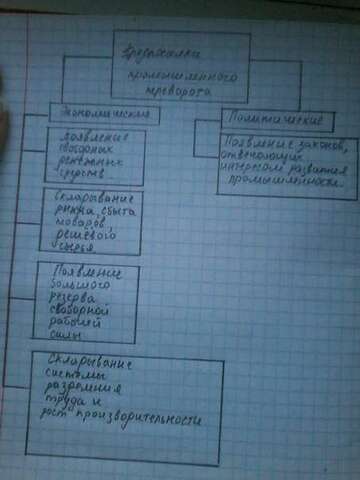 Предпосылки
промышленного
переворота
Экономические
Появление
свободных
денежных
средств
Складывание
рынка сбыта
товаров,
дешёвого
сырья
Появление
большого
резерва
свободной
рабочей
силы
Складывание
системы
разделения
труда и
рост производительности
Политические
Появление законов,
отвечающих
интересам развития
промышленности.